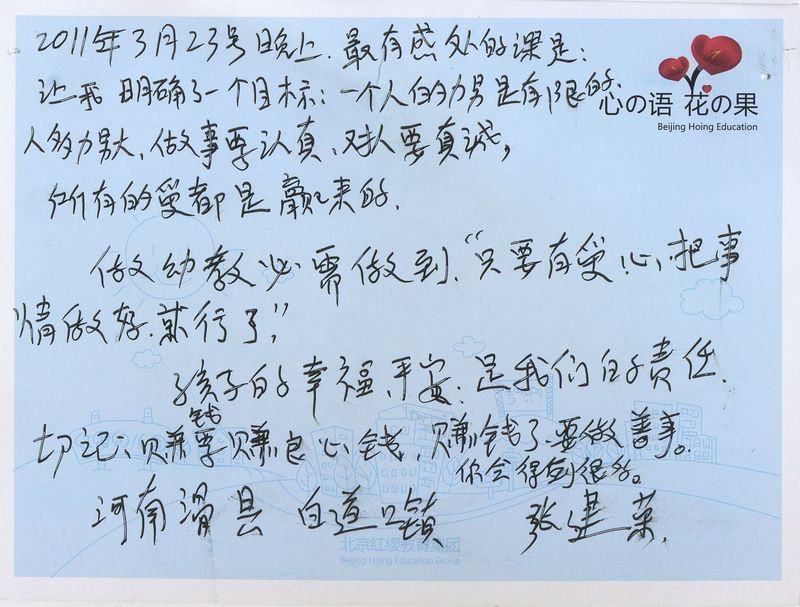 2011年3月23号晚上.最有感处的课是:
心の语 花の果
Beijing Hoing Education
让我明确了一个目标:一个人的力男是有限的.
人多力男大,做事要认真、对人要真诚,
所有的爱都是赢来的.
做幼教必需做到.“只要有爱心,把事
情做好.就行了,”
孩子的幸福、平安:是我们的责任.
钱
切记:赚要赚良心钱,赚钱了.要做善事。
你会得到很多。
河南滑县 白道口镇 张建荣.
北京红缨教育集团
Beijing Hoing Education Group